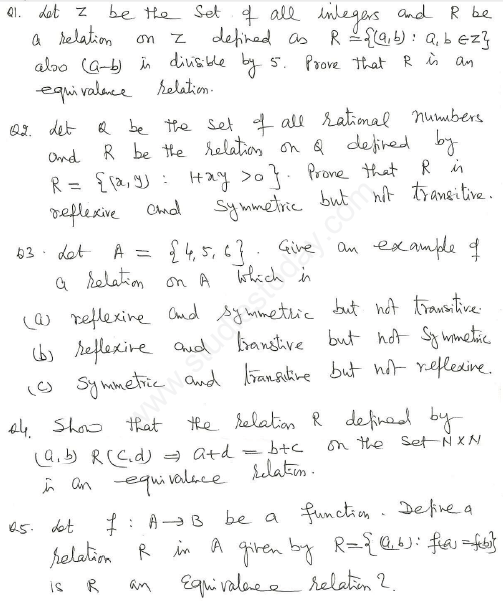 Q1. Let Z be the set of all integers and R be
a relation on Z defined as R = {(a,b) : a, b ∈ Z}
also (a-b) is divisible by 5. Prove that R is an
equivalence relation.
Q2. Let Q be the set of all rational numbers
and R be the relation on Q defined by
R = {(x, y) : 1+xy > 0}. Prove that R is
reflexive and symmetric but not transitive.
Q3. Let A = {4, 5, 6}. Give an example of
a relation on A which is
(a) reflexive and symmetric but not transitive.
(b) reflexive and transtive but not symmetric
(c) symmetric and transitive but not reflexive.
Q4. Show that the relation R defined by
(a, b) R (c, d) ⇒ a+d = b+c on the set N×N
is an equivalence relation.
Q5. Let f : A → B be a function. Define a
relation R in A given by R = {(a, b) : f(a) = f(b)}
is R an Equivalence relation?
www.studiestoday.com